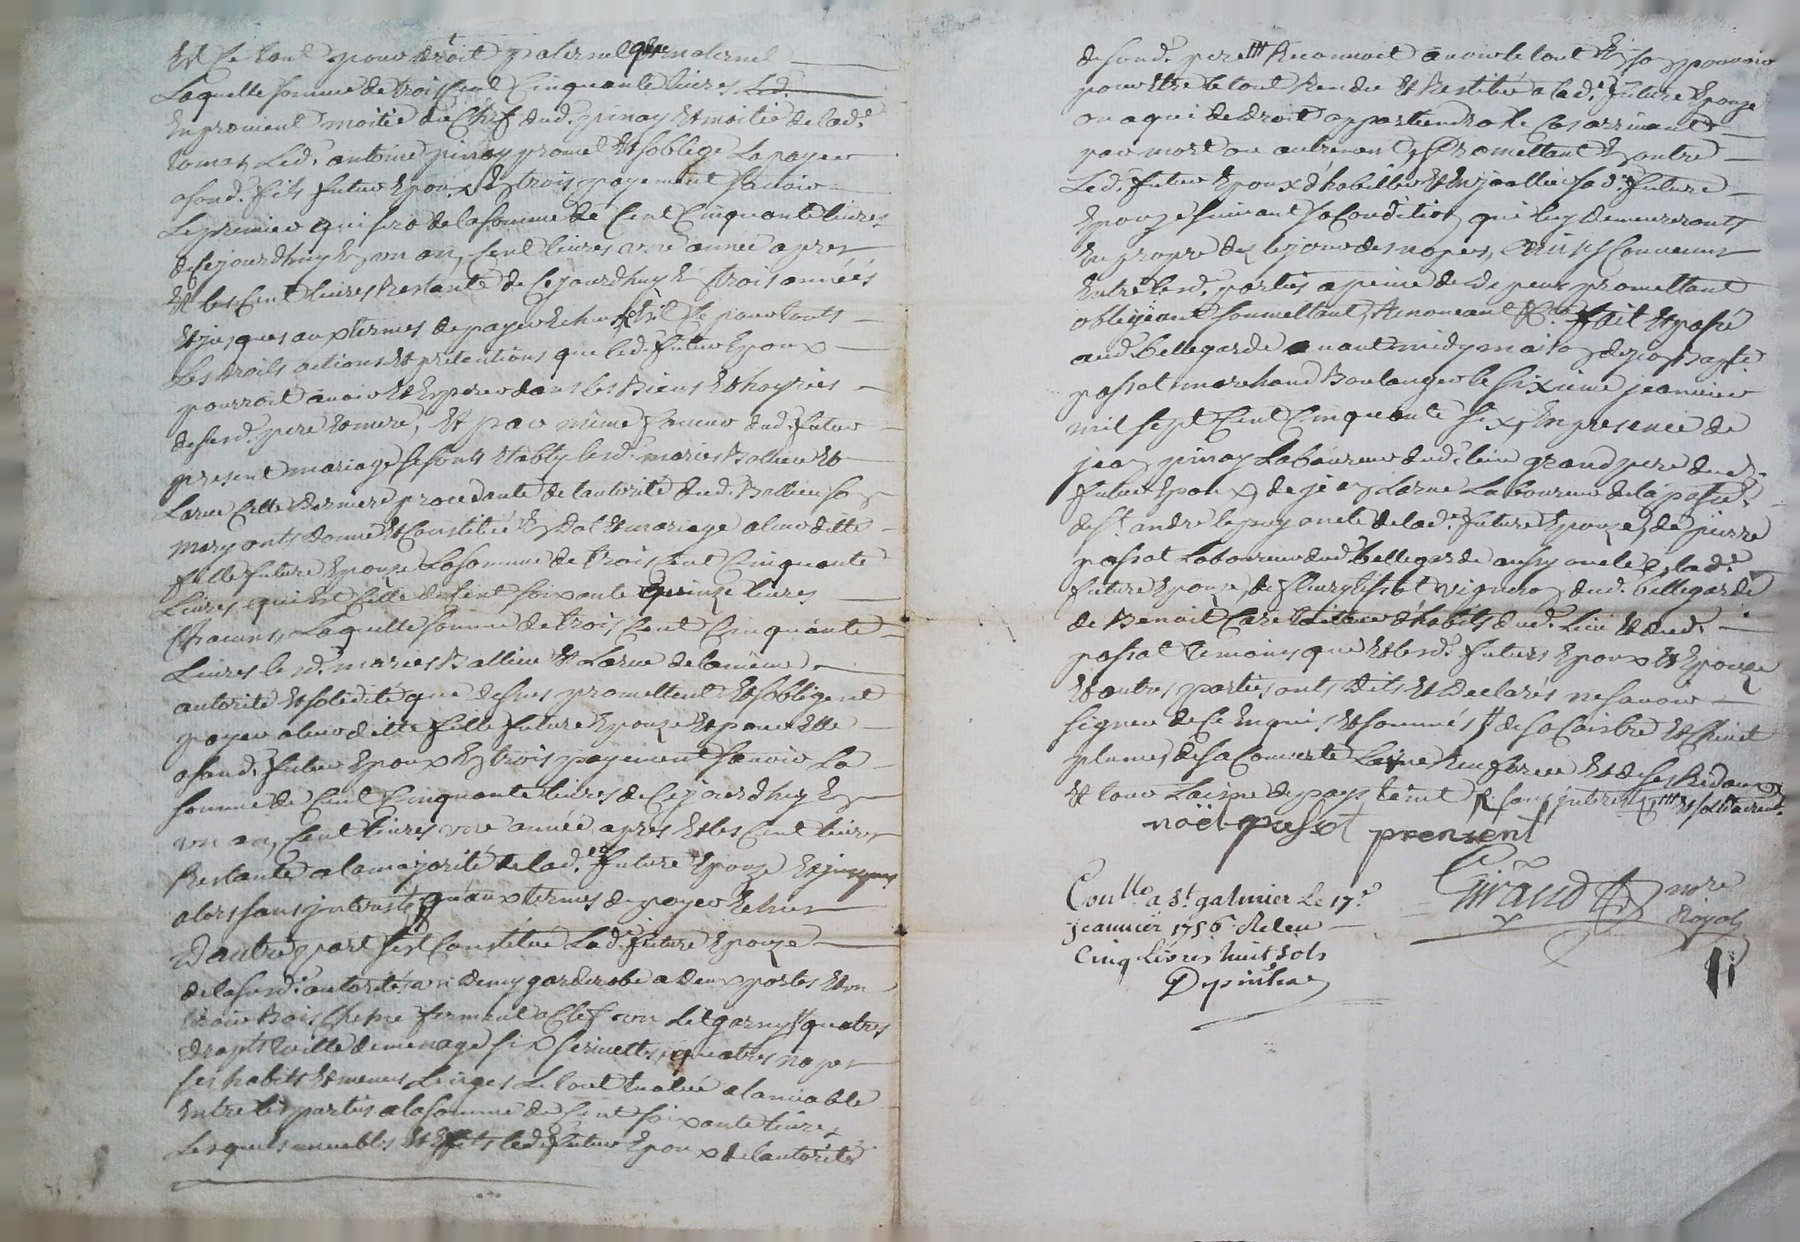 Et ce tout pour droit paternel que maternel
Laquelle somme de trois cent cinquante livres Led.
En provient moitié du chef dud. pinay Et moitié de lad.e
Led. antoine pinay promet Et soblige La payer
a sond. fils futur Epoux En trois payement savoir
Le premier qui sera de la somme de Cent Cinquante livres
de cejourdhuy En un an, Cent livres une année apres
Et les Cent livres Restante de Cejourdhuy En trois années
Et jusques aux termes de payer Echus Et ce pour touts
Les droits actions Et pretentions que led. futur Epoux
pourroit avoir Et Esperer dans les Biens Et hoyries
de sesd. pere Et mere, Et par même faveur dud. futur
present mariage se sont Etably lesd. mariés Ballieu Et
Larue Cette derniere procedante de lautorité dud. Ballieu son
mary onts donné Et Constitué En Dot Et mariage a leur ditte
fille future Epouze La somme de trois Cent Cinquante
Livres qui Est Celle de Cent soixante quinze livres
Chacuns, Laquelle somme de trois Cent Cinquante
Livres lesd. mariés Ballieu Et Larue de la même
autorité Et solidité que dessus promettent Et sobligent
payer a leur ditte fille future Epouze Et pour Elle
a sond. futur Epoux En trois payement savoir La
somme de Cent Cinquante livres de Cejourdhuy En
un an, Cent livres une année apres Et les Cent livres
Restante a la majorité de lad. future Epouze Et jusques
alors sans interests qu'aux termes de payer Echus
D'autre part s'est Constitué Lad.e future Epouze
de lad. autorité un demy garderobe a deux portes Et un
Bois Chene fermant a Clef un Lit garny quatres
drapts toille de menage six serviettes, quatres napes
ses habits Et menus Linges Le tout Evalué a lamiable
Entre les parties a la somme de Cent soixante livres
Lesquels meubles Et Effets led. futur Epoux de lautorité
de sond. pere Reconnoit avoir le tout En son pouvoir
pour Etre le tout Rendu Et Restitué a lad.e future Epouze
ou a qui de droit appartiendra le Cas arrivant
par mort ou autrement, Promettant En outre
Led. futur Epoux d'habiller Et Enjoallier sad. future
Epouze suivant sa Condition qui luy demeureronts
En propre des le jour des nopes, Ainsy Convenus
Entre lesd. parties a peine de Depens promettant
obligeant soumettant, Renonceant &c.a fait Et passé
aud. bellegarde avant midy maison de
passot marchand Boulanger le sixieme jeanvier
mil sept Cent Cinquante six, En presence de
jean pinay Laboureur dud. lieu grand pere dud.
futur Epoux, de jean Larue Laboureur de la parr.e
de St. andré le puy oncle de lad.e future Epouze, de pierre
passot Laboureur dud. bellegarde aussy oncle a lad.e
future Epouze, de fleury vigneron dud. bellegarde
de Benoit d'habits dud. Lieu Et dud.
passot temoins que Et lesd. futurs Epoux Et Epouze
Et autres parties onts dits Et declarés ne savoir
signer de Ce Enquis Et sommés de sa Et
plumes de sa Couverte Laine Et de ses Ridaux
Et tour Laine de pays teint sans interests Et solidairement.
noël passot prensent
Giraud nore
Royal
Conllé a St. galmier Le 17.e
jeanvier 1756 Receu
Cinq livres huit sols